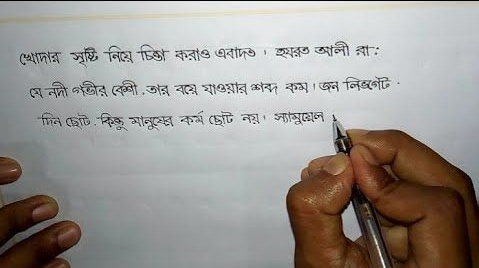 খোদার সৃষ্টি নিয়ে চিন্তা করাও এবাদত। হযরত আলী রা:
যে নদী গভীর বেশী. তার বয়ে যাওয়ার শব্দ কম। জন লিভগেট.
দিন ছোট. কিন্তু মানুষের কর্ম ছোট নয়। স্যামুয়েল